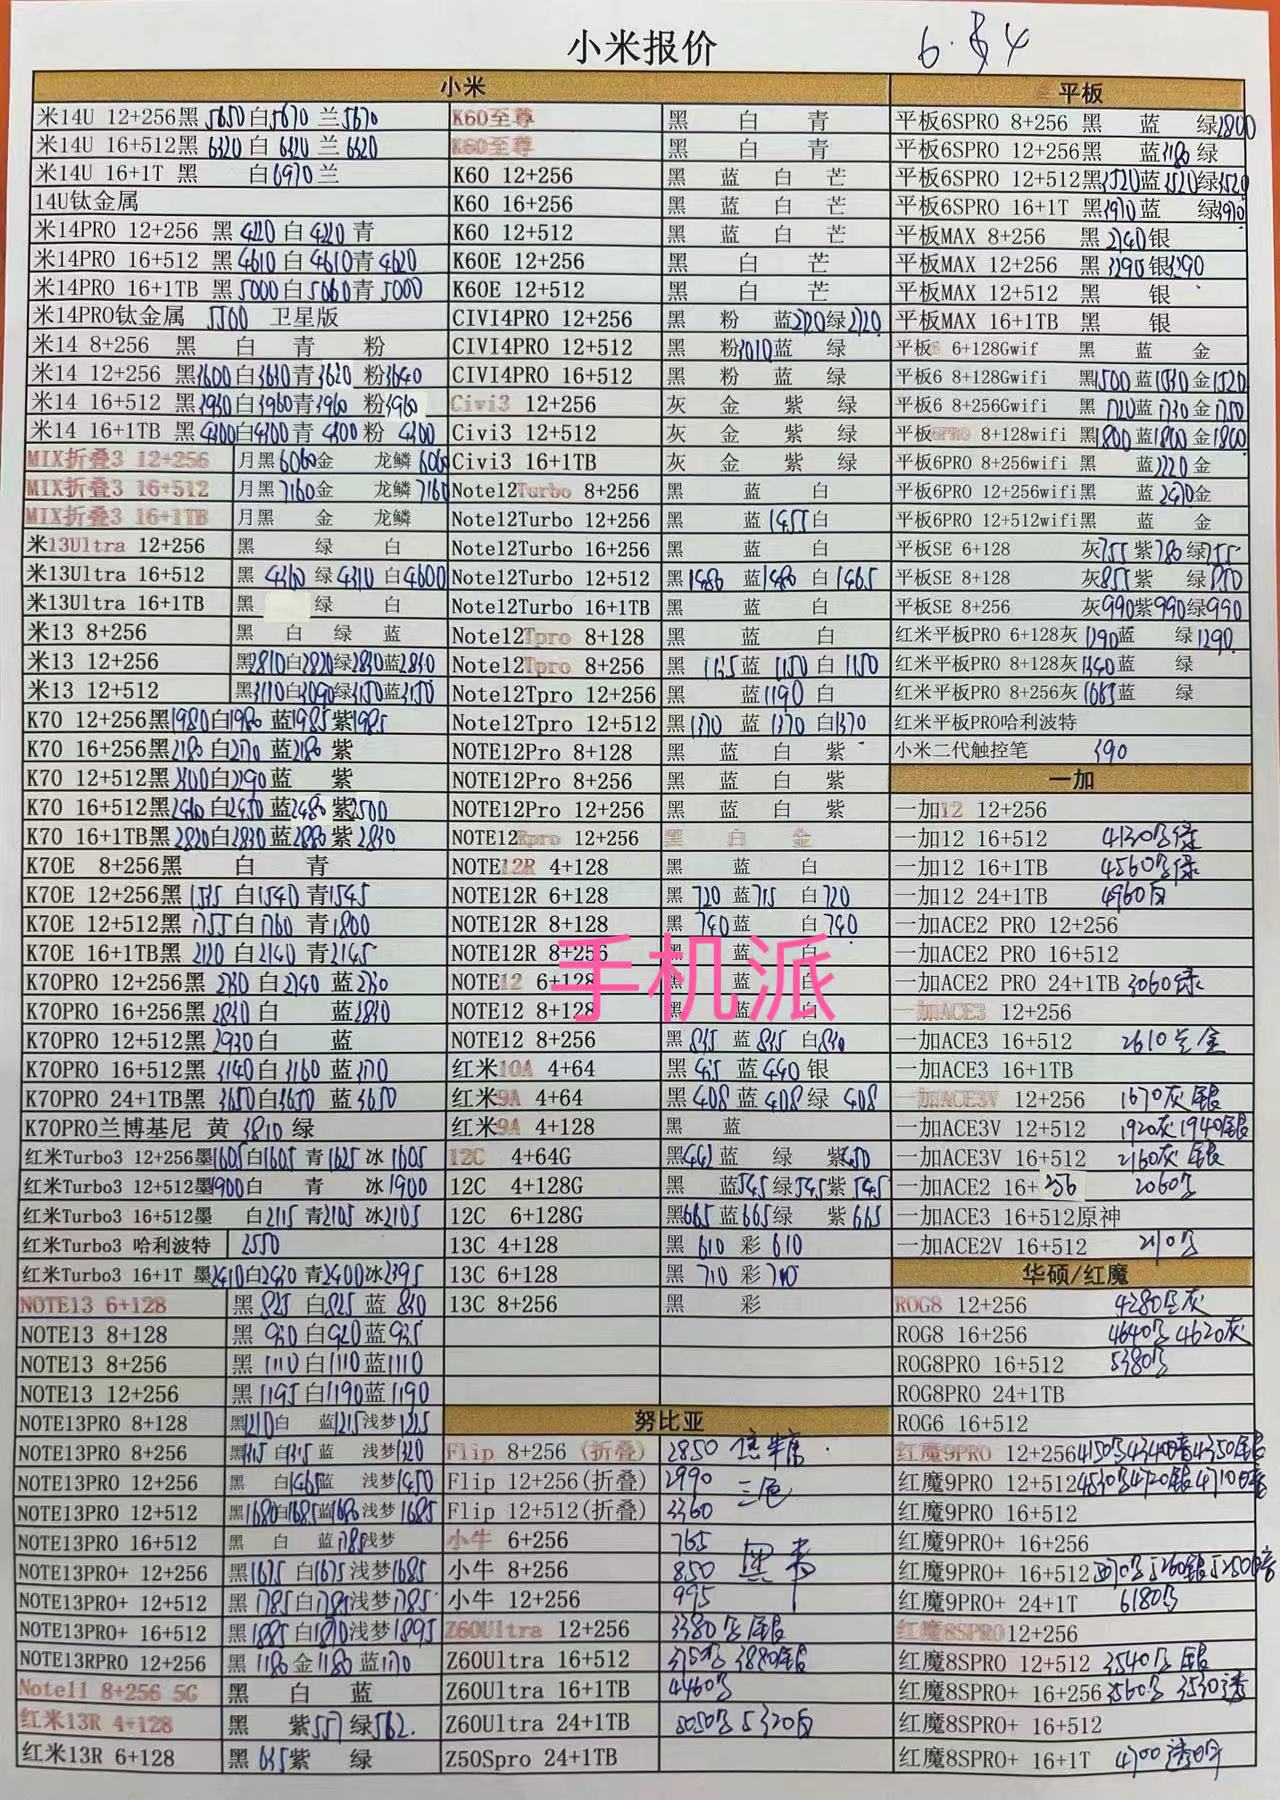 小米报价
小米
米14U 12+256黑 5650 白5670 兰5670
米14U 16+512黑 6320 白 6320 兰 6320
米14U 16+1T 黑 白6970兰
14U钛金属
米14PRO 12+256 黑 4220 白 4220 青
米14PRO 16+512 黑 4610 白 4610青 4620
米14PRO 16+1TB 黑 5000白 5060青 5000
米14PRO钛金属 5500 卫星版
米14 8+256 黑 白 青 粉
米14 12+256 黑3600白3630青3620 粉3640
米14 16+512 黑3930白3960青3960 粉3960
米14 16+1TB 黑4300白4300青 4300 粉 4300
MIX折叠3 12+256 月黑 6060金 龙鳞 6060
MIX折叠3 16+512 月黑 7160金 龙鳞 7160
MIX折叠3 16+1TB 月黑 金 龙鳞
米13Ultra 12+256 黑 绿 白
米13Ultra 16+512 黑 4360 绿 4310 白4600
米13Ultra 16+1TB 黑 绿 白
米13 8+256 黑 白 绿 蓝
米13 12+256 黑2810白2820绿2830蓝2830
米13 12+512 黑3110白3090绿3150蓝3150
K70 12+256黑1980白1980 蓝1985紫1985
K70 16+256黑2180白2170 蓝2180 紫
K70 12+512黑2300白2290 蓝 紫
K70 16+512黑2460 白2450 蓝2480 紫2500
K70 16+1TB黑2820白2830 蓝2880紫 2830
K70E 8+256黑 白 青
K70E 12+256黑 1535 白1540 青1545
K70E 12+512黑 1755 白1760 青1800
K70E 16+1TB黑 2120 白2140 青2145
K70PRO 12+256黑 2230 白2240 蓝2230
K70PRO 16+256黑2830 白 蓝2830
K70PRO 12+512黑2930白 蓝
K70PRO 16+512黑 3140白 3160 蓝3170
K70PRO 24+1TB黑 3650白3650 蓝 3650
K70PRO兰博基尼 黄 3810 绿
红米Turbo3 12+256墨1605白1605 青1625 冰1605
红米Turbo3 12+512墨1900白 青 冰1900
红米Turbo3 16+512墨 白2115 青2105 冰2105
红米Turbo3 哈利波特 2550
红米Turbo3 16+1T 墨2410白2430 青2400冰2395
NOTE13 6+128 黑 825 白825 蓝 830
NOTE13 8+128 黑 930 白920 蓝935
NOTE13 8+256 黑 1110白1110蓝1110
NOTE13 12+256 黑 1195白1190蓝 1190
NOTE13PRO 8+128 黑1210白 蓝1215浅梦1225
NOTE13PRO 8+256 黑1315 白1315蓝 浅梦1320
NOTE13PRO 12+256 黑 白1465蓝 浅梦1450
NOTE13PRO 12+512 黑1680白1685蓝1680 浅梦1685
NOTE13PRO 16+512 黑 白 蓝1785浅梦
NOTE13PRO+ 12+256 黑1675 白1675浅梦1685
NOTE13PRO+ 12+512 黑1785白1785浅梦1785
NOTE13PRO+ 16+512 黑1885白1870浅梦1895
NOTE13RPRO 12+256 黑 1180 金1180 蓝1170
Note11 8+256 5G 黑 白 蓝
红米13R 4+128 黑 紫557绿562.
红米13R 6+128 黑 635紫 绿
K60至尊 黑 白 青
K60至尊 黑 白 青
K60 12+256 黑 蓝 白 芒
K60 16+256 黑 蓝 白 芒
K60 12+512 黑 蓝 白 芒
K60E 12+256 黑 白 芒
K60E 12+512 黑 白 芒
CIVI4PRO 12+256 黑 粉 蓝2720绿2720
CIVI4PRO 12+512 黑 粉3010蓝 绿
CIVI4PRO 16+512 黑 粉 蓝 绿
Civi3 12+256 灰 金 紫 绿
Civi3 12+512 灰 金 紫 绿
Civi3 16+1TB 灰 金 紫 绿
Note12Turbo 8+256 黑 蓝 白
Note12Turbo 12+256 黑 蓝1455白
Note12Turbo 16+256 黑 蓝 白
Note12Turbo 12+512 黑1480 蓝1480 白 1465
Note12Turbo 16+1TB 黑 蓝 白
Note12Tpro 8+128 黑 蓝 白
Note12Tpro 8+256 黑 1135蓝 1150 白 1150
Note12Tpro 12+256 黑 蓝1190 白
Note12Tpro 12+512 黑1370 蓝 1370 白1370
NOTE12Pro 8+128 黑 蓝 白 紫
NOTE12Pro 8+256 黑 蓝 白 紫
NOTE12Pro 12+256 黑 蓝 白 紫
NOTE12Rpro 12+256 黑 白 金
NOTE12R 4+128 黑 蓝 白
NOTE12R 6+128 黑 720 蓝 715 白720
NOTE12R 8+128 黑 740蓝 白740
NOTE12R 8+256 黑 蓝 白
NOTE12 6+128 黑 蓝 白
NOTE12 8+128 黑 蓝 白
NOTE12 8+256 黑 835 蓝 835 白830
红米10A 4+64 黑 435 蓝440 银
红米9A 4+64 黑 408 蓝 408 绿 408
红米9A 4+128 黑 蓝
12C 4+64G 黑442 蓝 绿 紫450
12C 4+128G 黑 蓝545绿545紫 545
12C 6+128G 黑665 蓝665绿 紫 665
13C 4+128 黑 610 彩 610
13C 6+128 黑 710 彩 710
13C 8+256 黑 彩
努比亚
Flip 8+256 (折叠) 2850 焦糖
Flip 12+256(折叠) 2990 三色
Flip 12+512(折叠) 3360
小牛 6+256 765
小牛 8+256 850 黑青
小牛 12+256 995
Z60Ultra 12+256 3380 银
Z60Ultra 16+512 3880银
Z60Ultra 16+1TB 4460
Z60Ultra 24+1TB 5050 5320
Z50Spro 24+1TB
平板
平板6SPRO 8+256 黑 蓝 绿2800
平板6SPRO 12+256黑 蓝3180 绿
平板6SPRO 12+512黑3520蓝3520绿3520
平板6SPRO 16+1T 黑3970 蓝 绿3970
平板MAX 8+256 黑 2740银
平板MAX 12+256 黑 3290 银3290
平板MAX 12+512 黑 银
平板MAX 16+1TB 黑 银
平板6 6+128Gwif 黑 蓝 金
平板6 8+128Gwifi 黑1500 蓝1530 金1520
平板6 8+256Gwifi 黑 1720蓝1730 金1750
平板6PRO 8+128wifi 黑1800 蓝1800 金1800
平板6PRO 8+256wifi 黑 蓝2220 金
平板6PRO 12+256wifi黑 蓝 2470金
平板6PRO 12+512wifi黑 蓝 金
平板SE 6+128 灰755 紫 780 绿755
平板SE 8+128 灰855紫 绿850
平板SE 8+256 灰990紫990绿990
红米平板PRO 6+128灰 1290蓝 绿1290
红米平板PRO 8+128灰1340蓝 绿
红米平板PRO 8+256灰 1665蓝 绿
红米平板PRO哈利波特
小米二代触控笔 390
一加
一加12 12+256
一加12 16+512 4130 绿
一加12 16+1TB 4560 绿
一加12 24+1TB 4960白
一加ACE2 PRO 12+256
一加ACE2 PRO 16+512
一加ACE2 PRO 24+1TB 3060绿
一加ACE3 12+256
一加ACE3 16+512 2610 金
一加ACE3 16+1TB
一加ACE3V 12+256 1670灰 银
一加ACE3V 12+512 1920灰1940银
一加ACE3V 16+512 2160灰 银
一加ACE2 16+256 2060
一加ACE3 16+512原神
一加ACE2V 16+512
华硕/红魔
ROG8 12+256 4280 灰
ROG8 16+256 4640 4620灰
ROG8PRO 16+512 5380
ROG8PRO 24+1TB
ROG6 16+512
红魔9PRO 12+256 4150 4340 4350银
红魔9PRO 12+512 4530 4720银 4710
红魔9PRO 16+512
红魔9PRO+ 16+256
红魔9PRO+ 16+512 5260银 5250
红魔9PRO+ 24+1T 6180
红魔8SPRO12+256
红魔8SPRO 12+512 3540 银
红魔8SPRO+ 16+256 3560 3530透
红魔8SPRO+ 16+512
红魔8SPRO+ 16+1T 4700透明
手机派